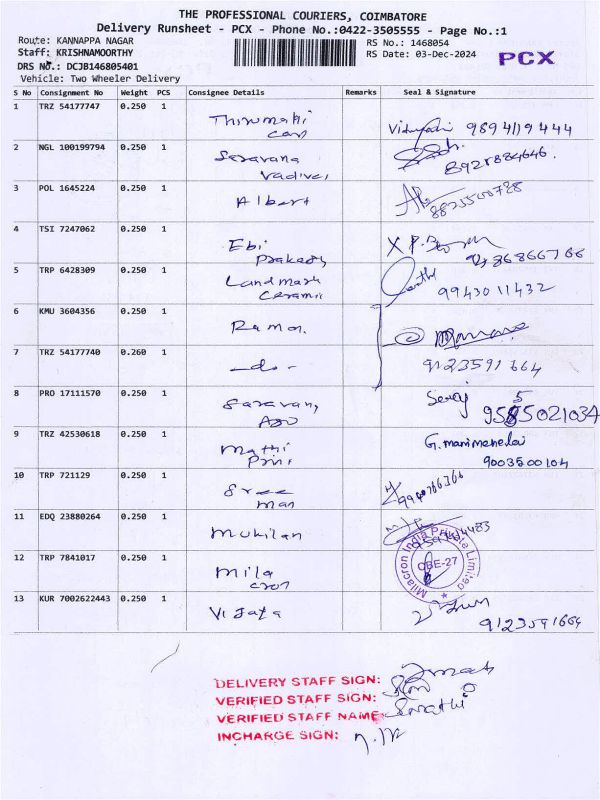 THE PROFESSIONAL COURIERS, COIMBATORE
Delivery Runsheet - PCX - Phone No.:0422-3505555 - Page No.:1
Route: KANNAPPA NAGAR
RS No.: 1468054
Staff: KRISHNAMOORTHY
RS Date: 03-Dec-2024
PCX
DRS No.: DCJB146805401
Vehicle: Two Wheeler Delivery
S No Consignment No Weight PCS Consignee Details Remarks Seal & Signature
1 TRZ 54177747 0.250 1 Thirumathi
9894119444
2 NGL 100199794 0.250 1 Saravana
Vadivel
3 POL 1645224 0.250 1 Albert
4 TSI 7247062 0.250 1 Ebi
Prakash
5 TRP 6428309 0.250 1 Landmark
Ceramic
9943011432
6 KMU 3604356 0.250 1 Raman
7 TRZ 54177740 0.260 1 -do-
9123591664
8 PRO 17111570 0.250 1 Saravan
9585021034
9 TRZ 42530618 0.250 1 Mathi
Print
G. manimehalai
9003500104
10 TRP 721129 0.250 1 Sree
man
11 EDQ 23880264 0.250 1 Mukilan
12 TRP 7841017 0.250 1 Mila
cron
Milacron India Private Limited
CBE-27
13 KUR 7002622443 0.250 1 Vijaya
9123591664
DELIVERY STAFF SIGN:
VERIFIED STAFF SIGN:
VERIFIED STAFF NAME:
INCHARGE SIGN: